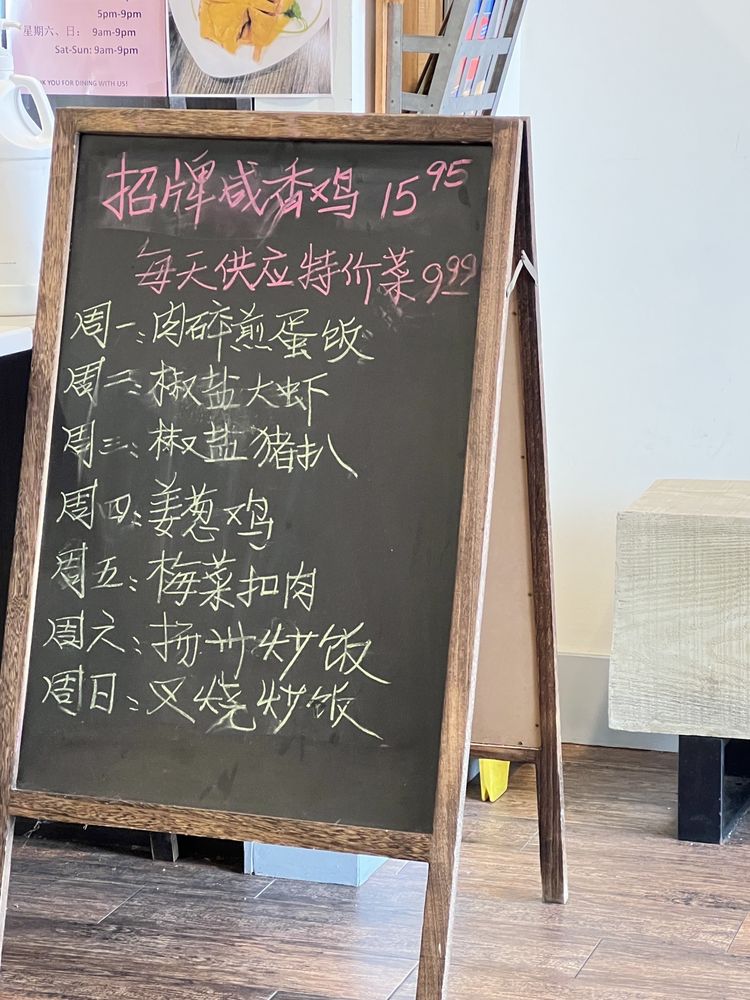 5pm-9pm
星期六、日： 9am-9pm
Sat-Sun: 9am-9pm
K YOU FOR DINING WITH US!
招牌咸香鸡 15.95
每天供应特价菜 9.99
周一：肉碎煎蛋饭
周二：椒盐大虾
周三：椒盐猪扒
周四：姜葱鸡
周五：梅菜扣肉
周六：扬州炒饭
周日：叉烧炒饭